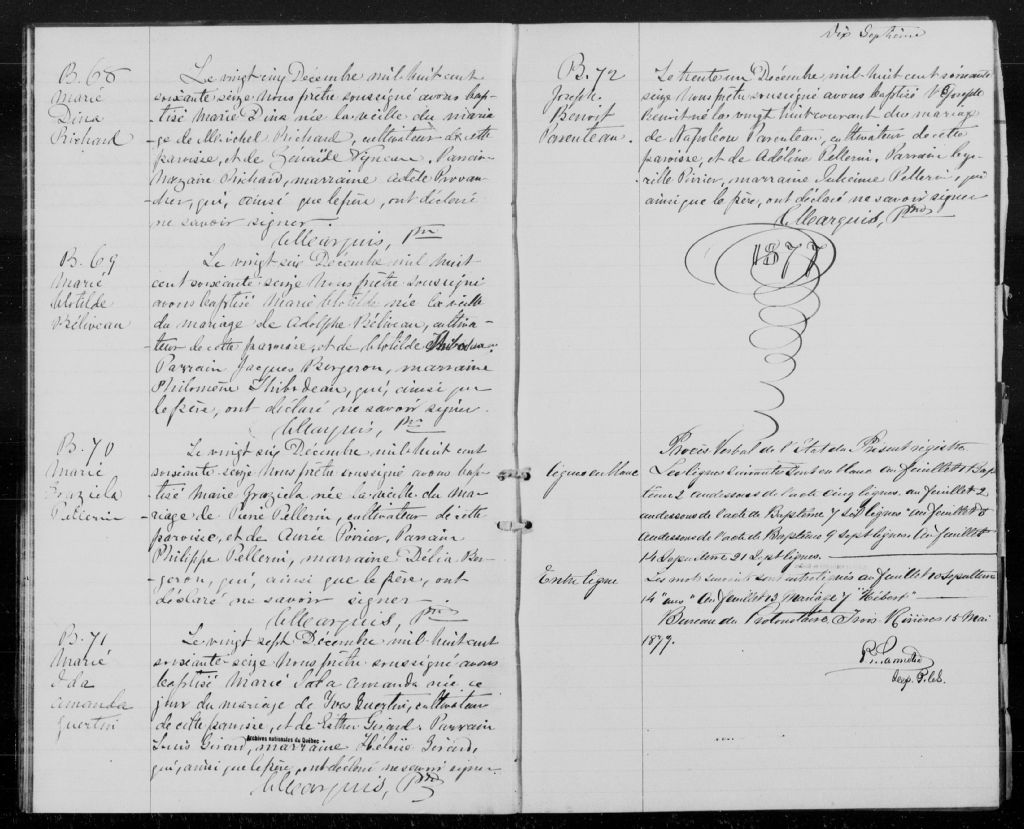 B. 68
Marie
Dina
Richard
Le vingt cinq Décembre mil huit cent
soixante seize Nous prêtre soussigné avons bap-
tisé Marie Dina née la veille du maria-
ge de Michel Richard, cultivateur de cette
paroisse, et de Zénaïde Vigneau. Parrain
Nazaire Richard, marraine Adèle Proven-
cher, qui, ainsi que le père, ont déclaré
ne savoir signer.
C Marquis, Ptre
B. 69
Marie
Clotilde
Béliveau
Le vingt six Décembre mil huit
cent soixante seize Nous prêtre soussigné
avons baptisé Marie Clotilde née la veille
du mariage de Adolphe Béliveau, cultiva-
teur de cette paroisse, et de Clotilde Thibodeau.
Parrain Jacques Bergeron, marraine
Philomène Thibodeau, qui, ainsi que
le père, ont déclaré ne savoir signer.
C Marquis, Ptre
B. 70
Marie
Graziela
Pellerin
Le vingt six Décembre, mil huit cent
soixante seize Nous prêtre soussigné avons bap-
tisé Marie Graziela née la veille du ma-
riage de Pierre Pellerin, cultivateur de cette
paroisse, et de Aurée Poirier, Parrain
Philippe Pellerin, marraine Délia Ber-
geron, qui, ainsi que le père, ont
déclaré ne savoir signer.
C Marquis, Ptre
B. 71
Marie
Ida
Amanda
Guertin
Le vingt sept Décembre, mil huit cent
soixante seize Nous prêtre soussigné avons
baptisé Marie Ida Amanda née ce
jour du mariage de Yves Guertin, cultivateur
de cette paroisse, et de Esther Girard. Parrain
Archives nationales du Québec
Louis Girard, marraine Héloïse Girard,
qui, ainsi que le père, ont déclaré ne savoir signer.
C Marquis, Ptre
Dix Septième
B. 72
Joseph
Benoit
Parenteau
Le trente un Décembre mil huit cent soixante
seize Nous prêtre soussigné avons baptisé Joseph
Benoit né le vingt huit courant du mariage
de Napoléon Parenteau, cultivateur de cette
paroisse, et de Adéline Pellerin. Parrain Cy-
rille Poirier, marraine Pellerin, qui
ainsi que le père, ont déclaré ne savoir signer
C Marquis, Ptre
1877
Procès Verbal de l'État du Présent régistre
lignes en blanc
Les lignes suivantes sont en blanc au feuillet 1 Bap-
tême 2 audessous de l'acte cinq lignes. au feuillet 2
audessous de l'acte de Baptême 7 six lignes au feuillet
audessous de l'acte de Baptême 9 sept lignes. Au feuillet
14 Sepulture 21 Sept lignes.
Entre ligne
Les mots suivants sont entrelignés au feuillet 10 Sepulture
14 "ans" Au feuillet 13 Mariage 7 "Hébert"
Bureau du Protonotaire. Trois Rivières 15 Mai
1877.